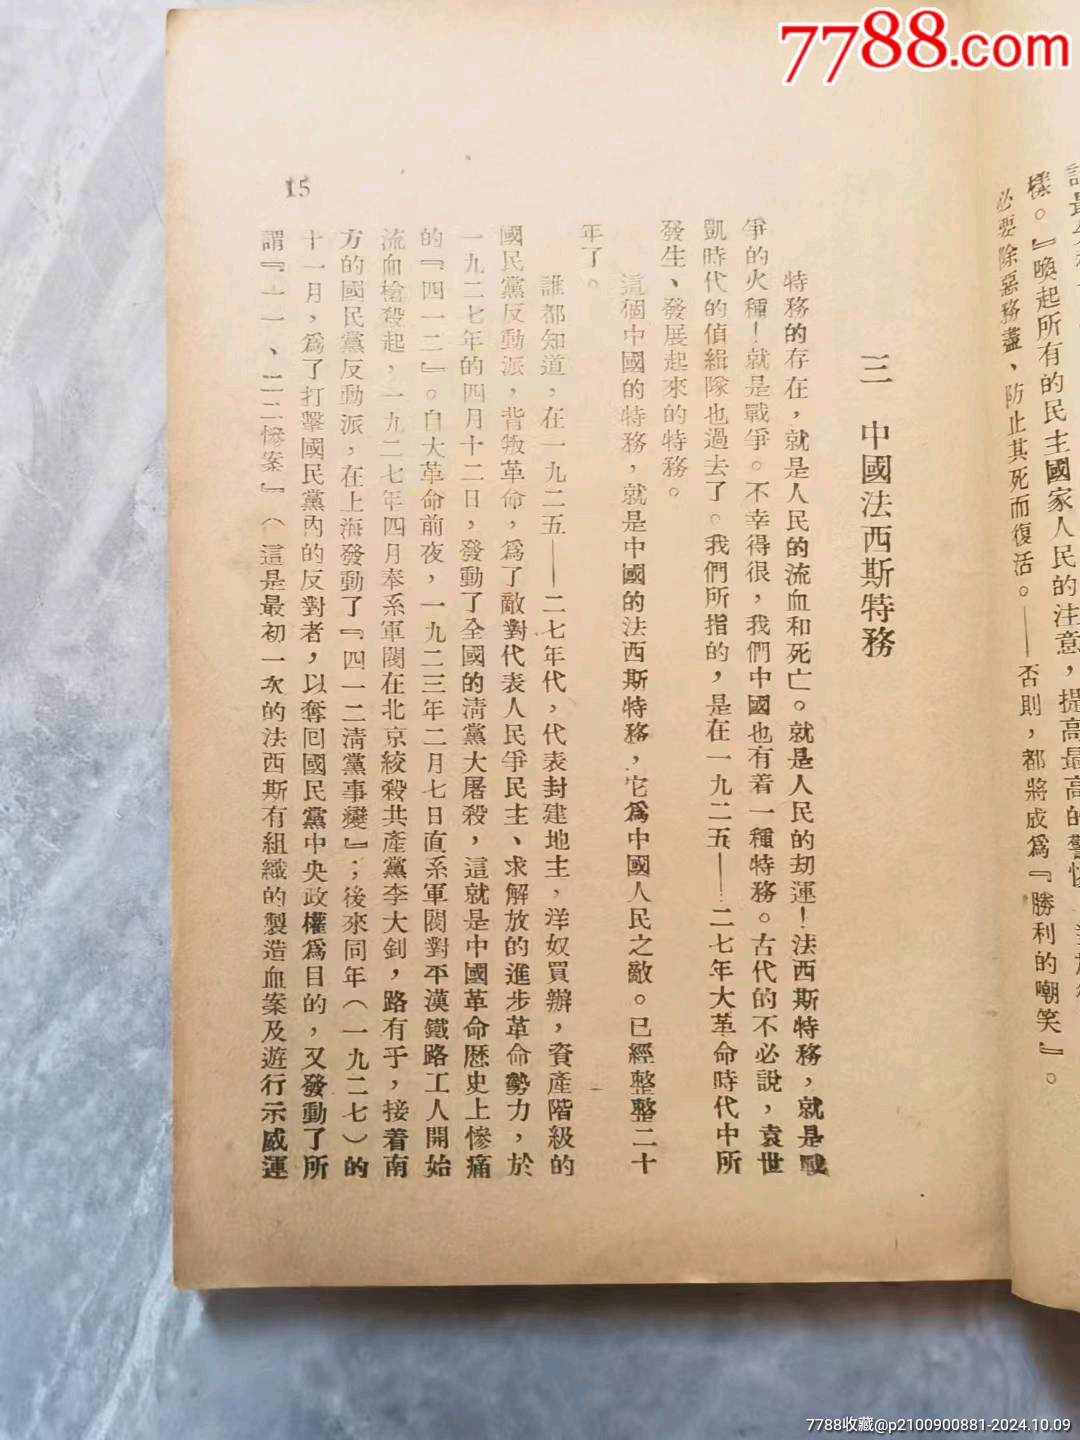 7788.com
樣。』喚起所有的民主國家人民的注意，提高最高的警
必要除惡務盡、防止其死而復活。——否則，都將成爲『勝利的嘲笑』。
三　中國法西斯特務
特務的存在，就是人民的流血和死亡。就是人民的劫運！法西斯特務，就是戰
爭的火種！就是戰爭。不幸得很，我們中國也有着一種特務。古代的不必說，袁世
凱時代的偵緝隊也過去了。我們所指的，是在一九二五——二七年大革命時代中所
發生、發展起來的特務。
這個中國的特務，就是中國的法西斯特務，它爲中國人民之敵。已經整整二十
年了。
誰都知道，在一九二五——二七年代，代表封建地主，洋奴買辦，資產階級的
國民黨反動派，背叛革命，爲了敵對代表人民爭民主、求解放的進步革命勢力，於
一九二七年的四月十二日，發動了全國的淸黨大屠殺，這就是中國革命歷史上慘痛
的『四一二』。自大革命前夜，一九二三年二月七日直系軍閥對平漢鐵路工人開始
流血槍殺起，一九二七年四月奉系軍閥在北京絞殺共產黨李大釗，路有乎，接着南
方的國民黨反動派，在上海發動了『四一二淸黨事變』；後來同年（一九二七）的
十一月，爲了打擊國民黨內的反對者，以奪囘國民黨中央政權爲目的，又發動了所
謂『一一、二二慘案』（這是最初一次的法西斯有組織的製造血案及遊行示威運
15
7788收藏@p2100900881-2024.10.09